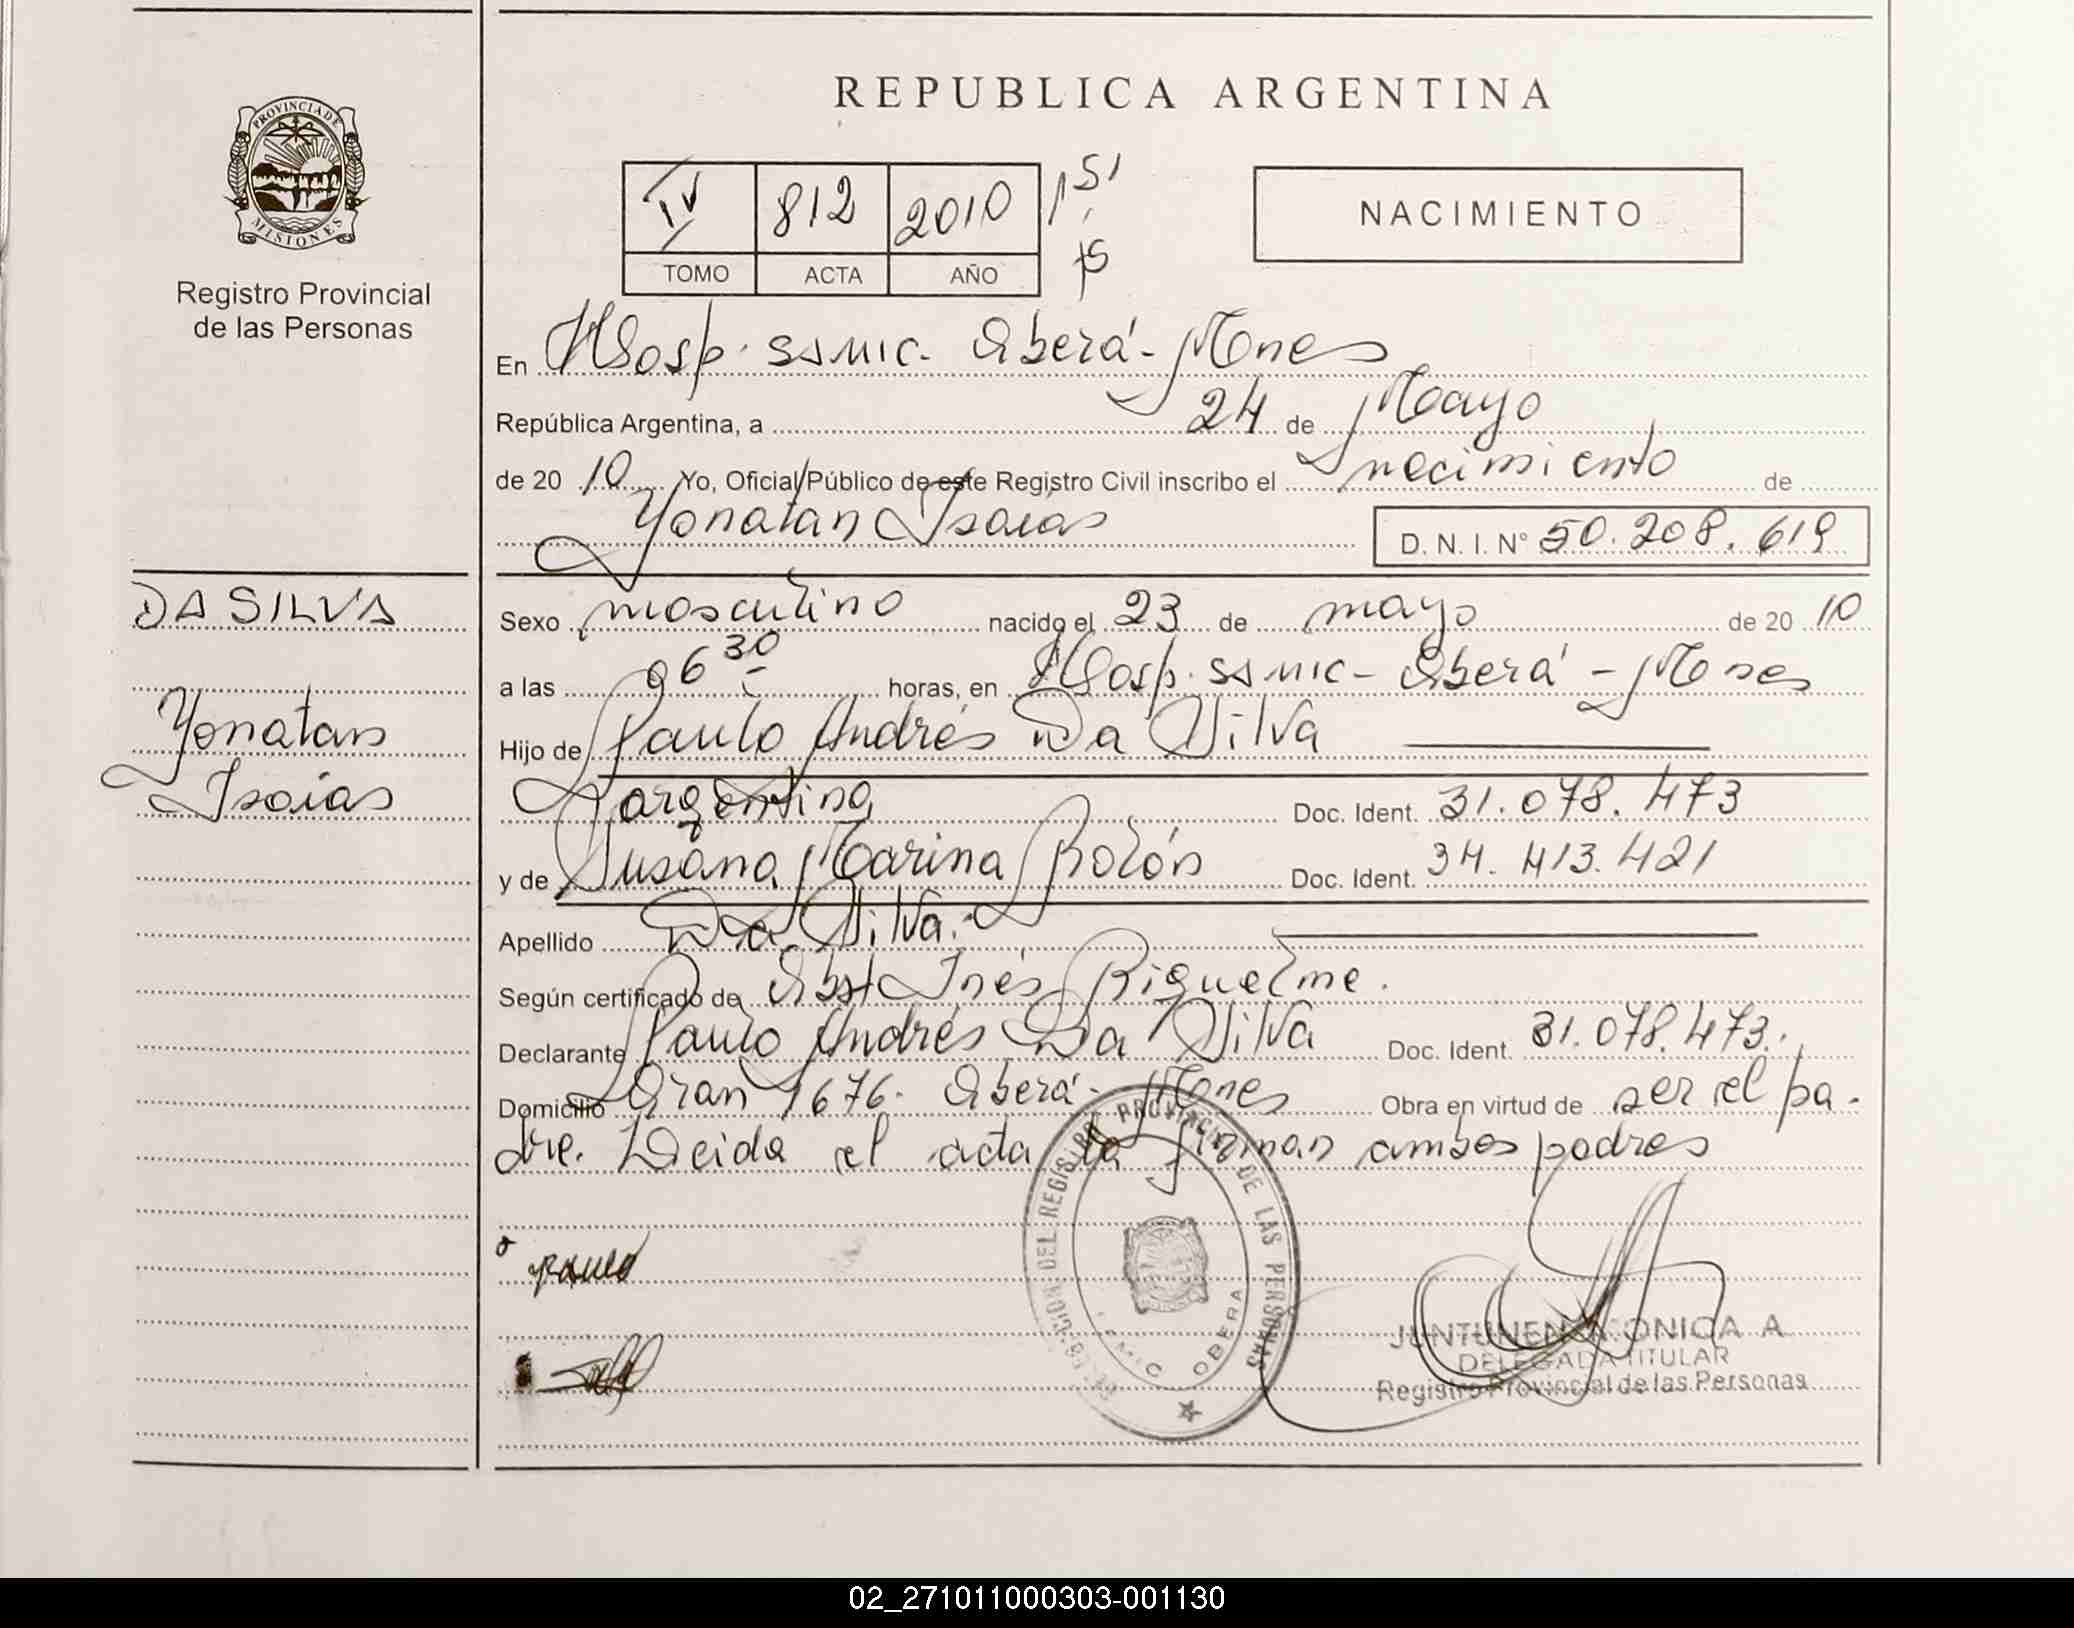 REPUBLICA ARGENTINA
PROVINCIA DE
MISIONES
Registro Provincial
de las Personas
IV 812 2010 151
TOMO ACTA AÑO
NACIMIENTO
En Hosp. SAMIC - Oberá - Mnes
República Argentina, a 24 de Mayo
de 20 10 Yo, Oficial Público de este Registro Civil inscribo el nacimiento de
Yonatan Isaías D. N. I. N° 50.208.619
DA SILVA
Yonatan
Isaías
Sexo masculino nacido el 23 de mayo de 20 10
a las 06 30 horas, en Hosp. SAMIC - Oberá - Mnes
Hijo de Paulo Andrés Da Silva
argentino Doc. Ident. 31.078.473
y de Susana Marina Rolón Doc. Ident. 34.413.421
Apellido Da Silva.
Según certificado de Obst Inés Riquelme.
Declarante Paulo Andrés Da Silva Doc. Ident. 31.078.473.
Domicilio Oran 1676. Oberá - Mnes Obra en virtud de ser el pa-
dre. Leida el acta la firman ambos padres
paulo
DEL REGISTRO PROVINCIAL DE LAS PERSONAS
OBERA
JUNTUNEN MONICA A.
DELEGADA TITULAR
Registro Provincial de las Personas
02_271011000303-001130